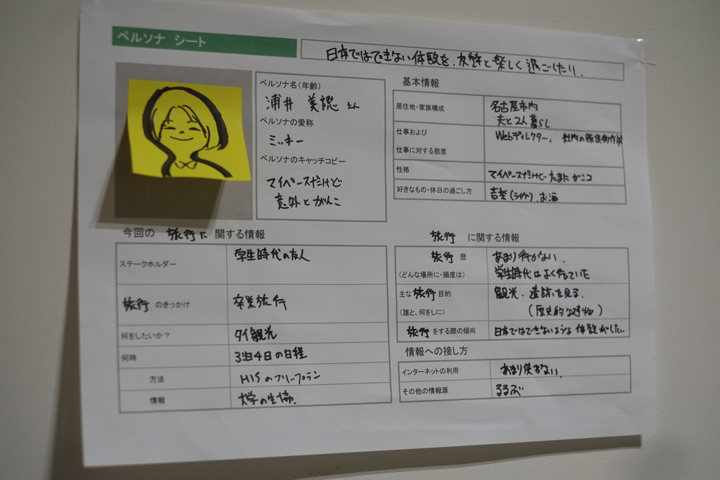 ペルソナ シート
日本ではできない体験を、友達と楽しく過ごしたい。
ペルソナ名(年齢)
浦井 美穂 さん
ペルソナの愛称
ミッキー
ペルソナのキャッチコピー
マイペースだけど
意外とがんこ
基本情報
居住地・家族構成
名古屋市内
夫と2人暮らし
仕事および
仕事に対する態度
Webディレクター、社内の
性格
マイペースだけど たまに ガンコ
好きなもの・休日の過ごし方
音楽(ライヴ)、お酒
今回の 旅行に 関する情報
ステークホルダー
学生時代の友人
旅行 のきっかけ
卒業旅行
何をしたいか?
タイ観光
何時
3泊4日の日程
方法
HISのフリープラン
情報
大学の生協
旅行 に関する情報
旅行 歴
(どんな場所に・頻度は)
あまり行かない。
学生時代はよく行っていた
主な旅行目的
(誰と、何をしに)
観光、遺跡を見る。
(歴史的建造物)
旅行をする際の傾向
日本ではできないような 体験がしたい。
情報への接し方
インターネットの利用
あまり使わない。
その他の情報源
るるぶ